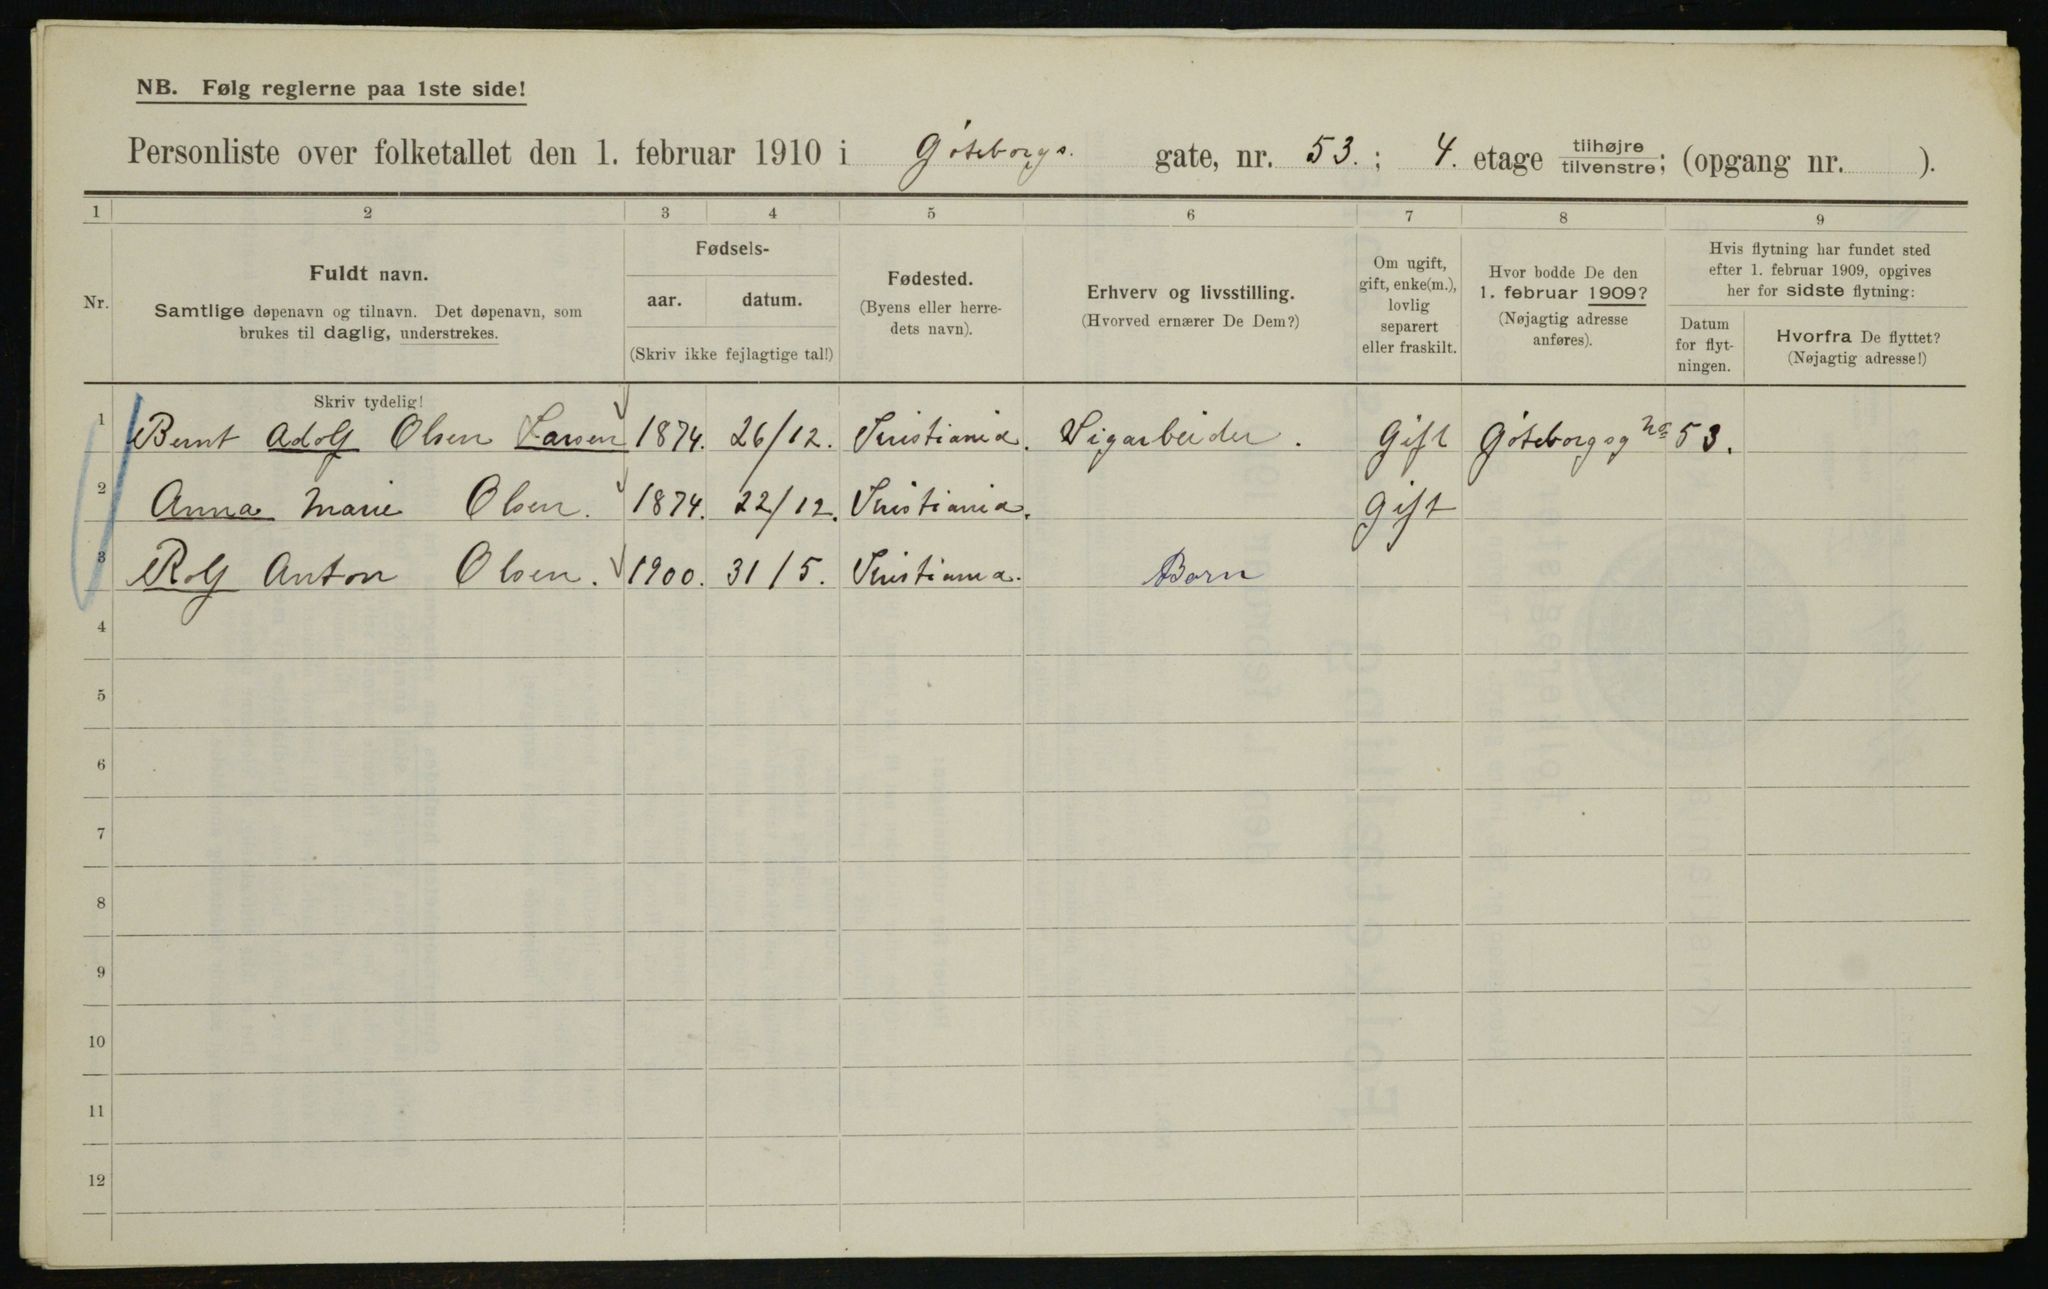 NB. Følg reglerne paa 1ste side!
Personliste over folketallet den 1. februar 1910 i Gøteborgs. gate, nr. 53. ; 4. etage tilhøjre tilvenstre; (opgang nr. ).
1 2 3 4 5 6 7 8 9
Nr.
Fuldt navn.
Samtlige døpenavn og tilnavn. Det døpenavn, som
brukes til daglig, understrekes.
Fødsels-
aar. datum.
(Skriv ikke fejlagtige tal!)
Fødested.
(Byens eller herre-
dets navn).
Erhverv og livsstilling.
(Hvorved ernærer De Dem?)
Om ugift,
gift, enke(m.),
lovlig
separert
eller fraskilt.
Hvor bodde De den
1. februar 1909?
(Nøjagtig adresse
anføres).
Hvis flytning har fundet sted
efter 1. februar 1909, opgives
her for sidste flytning:
Datum
for flyt-
ningen.
Hvorfra De flyttet?
(Nøjagtig adresse!)
Skriv tydelig!
1 Bernt Adolf Olsen Larsen 1874. 26/12. Kristiania. Sigarbeider. Gift Gøteborgsg No 53.
2 Anna Marie Olsen. 1874. 22/12. Kristiania. Gift
3 Rolf Anton Olsen. 1900. 31/5. Kristiania. Barn
4
5
6
7
8
9
10
11
12